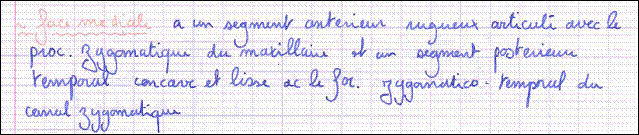 - face médiale a un segment antérieur rugueux articulé avec le
proc. zygomatique du maxillaire et un segment postérieur
temporal concave et lisse ac le for. zygomatico-temporal du
canal zygomatique